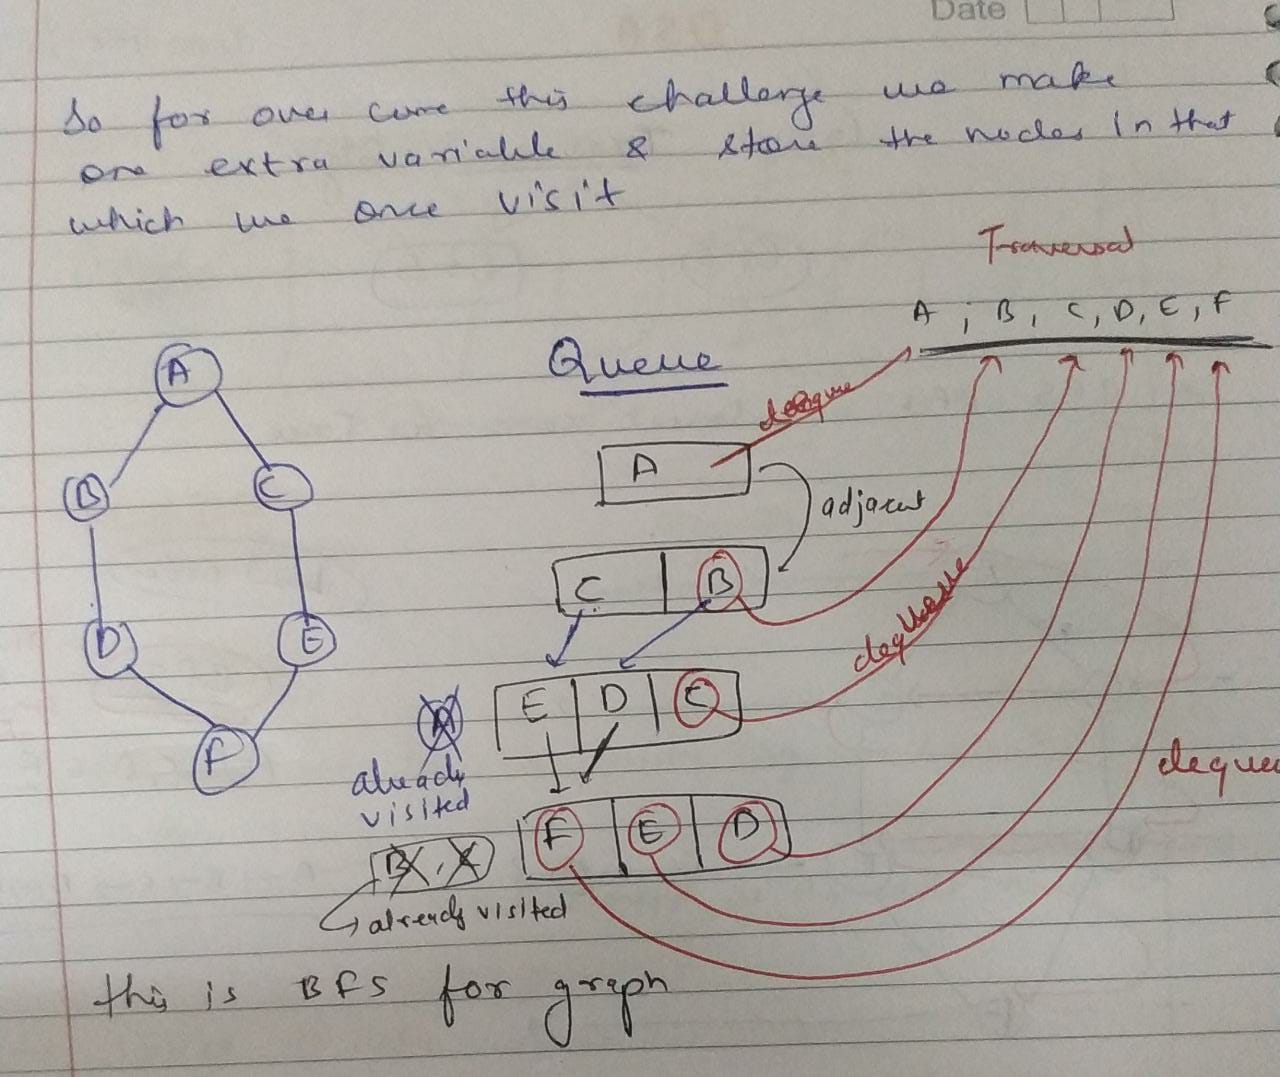 Date
So for over come this challenge we make
one extra variable & store the nodes in that
which we once visit
Traversal
A , B , C, D, E, F
Queue
A
A
dequeue
B
C
adjacent
C B
D
E
dequeue
E D C
A
already
visited
F
deque
F E D
B
already visited
this is BFS for graph